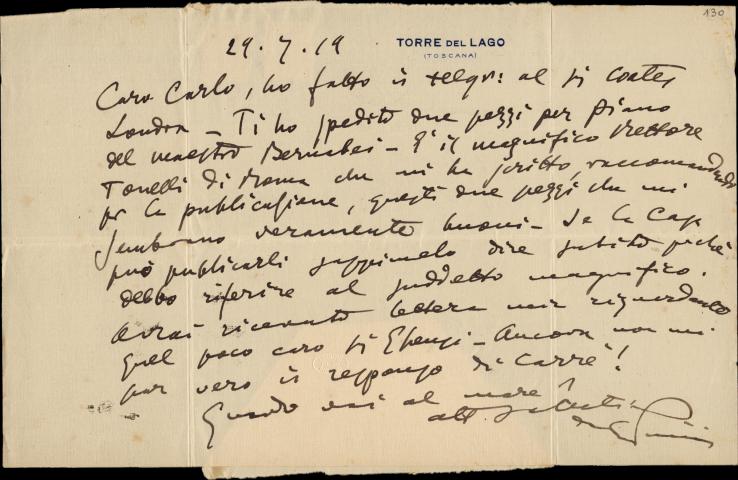 130
29.7.19
TORRE DEL LAGO
(TOSCANA)
Caro Carlo, ho fatto il telgr: al Sr Coates
Londra – Ti ho spedito due pezzi per piano
del maestro Bernabei – È il magnifico Rettore
Tonelli di Roma che mi ha scritto, raccomandando
per la publicazione, questi due pezzi che mi
sembrano veramente buoni – Se la Casa
può publicarli sappimelo dire subito perchè
debbo riferire al suddetto magnifico.
Avrai ricevuto lettera mia riguardante
quel poco caro Sr – Ancora non mi
par vero il responso di Carré!
Quando vai al mare?
aff saluti